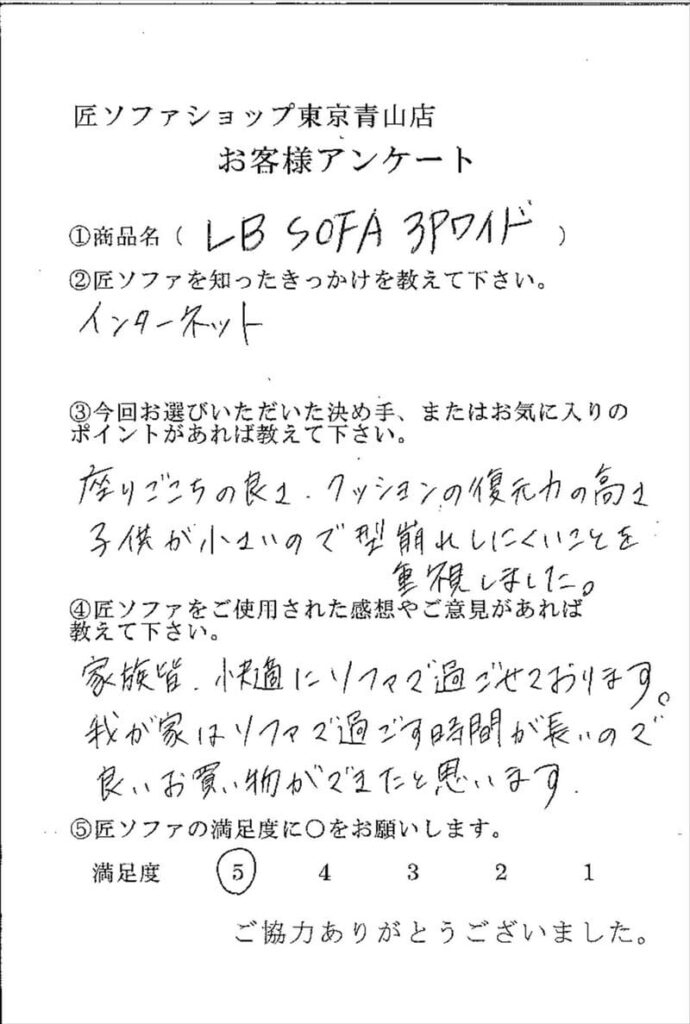 匠ソファショップ東京青山店
お客様アンケート
①商品名（ LB SOFA 3Pワイド ）
②匠ソファを知ったきっかけを教えて下さい。
インターネット
③今回お選びいただいた決め手、またはお気に入りの
ポイントがあれば教えて下さい。
座りごこちの良さ．クッションの復元力の高さ
子供が小さいので型崩れしにくいことを
重視しました。
④匠ソファをご使用された感想やご意見があれば
教えて下さい。
家族皆．快適にソファで過ごせております。
我が家はソファで過ごす時間が長いので
良いお買い物ができたと思います．
⑤匠ソファの満足度に〇をお願いします。
満足度 5 4 3 2 1
ご協力ありがとうございました。